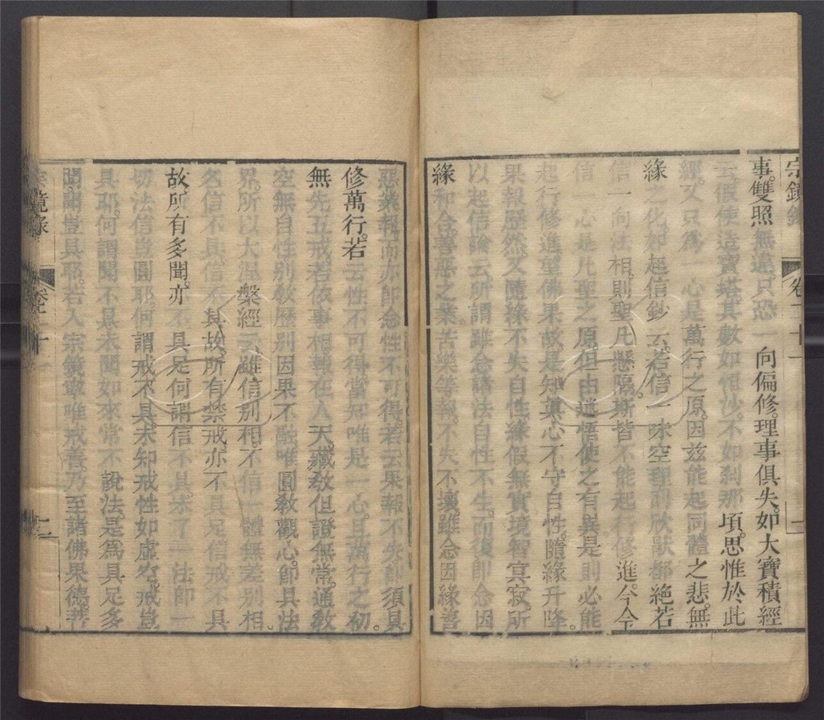 宗鏡錄 卷二十一
事雙照無違只恐一向偏修理事俱失如大寶積經
云假使造寶塔其數如恒沙不如剎那頃思惟於此
經又只為一心是萬行之原因茲能起同體之悲無
緣之化如起信鈔云若信一味空理則欣猒都絕若
信一向 相則聖凡懸隔斯皆不能起行修進今令
信一心是凡聖之原但由迷悟使之有異是則必能
起行修進望佛果故是知真心不守自性隨緣升降
果報歷然又隨緣不失自性緣假無實境智冥寂所
以起信論云所謂雖念諸法自性不生而復即念因
緣和合善惡之業苦樂等報不失不壞雖念因緣善
惡業報而亦即念性不可得若云果報不失即須具
修萬行若云性不可得當知唯是一心且萬行之初
無先五戒若依事相報在人天藏教但證無常通教
空無自性別教歷別因果不融唯圓教觀心即具法
界所以大涅槃經云雖信別相不信一體無差別相
名信不具信不具故所有禁戒亦不具足信戒不具
故所有多聞亦不具足何謂信不具未了一法即一
切法信豈圓耶何謂戒不具未知戒性如虛空戒豈
具耶何謂聞不具未聞如來常不說法是為具足多
聞聞豈具耶若入宗鏡寧唯戒善乃至諸佛果德菩
宗鏡錄